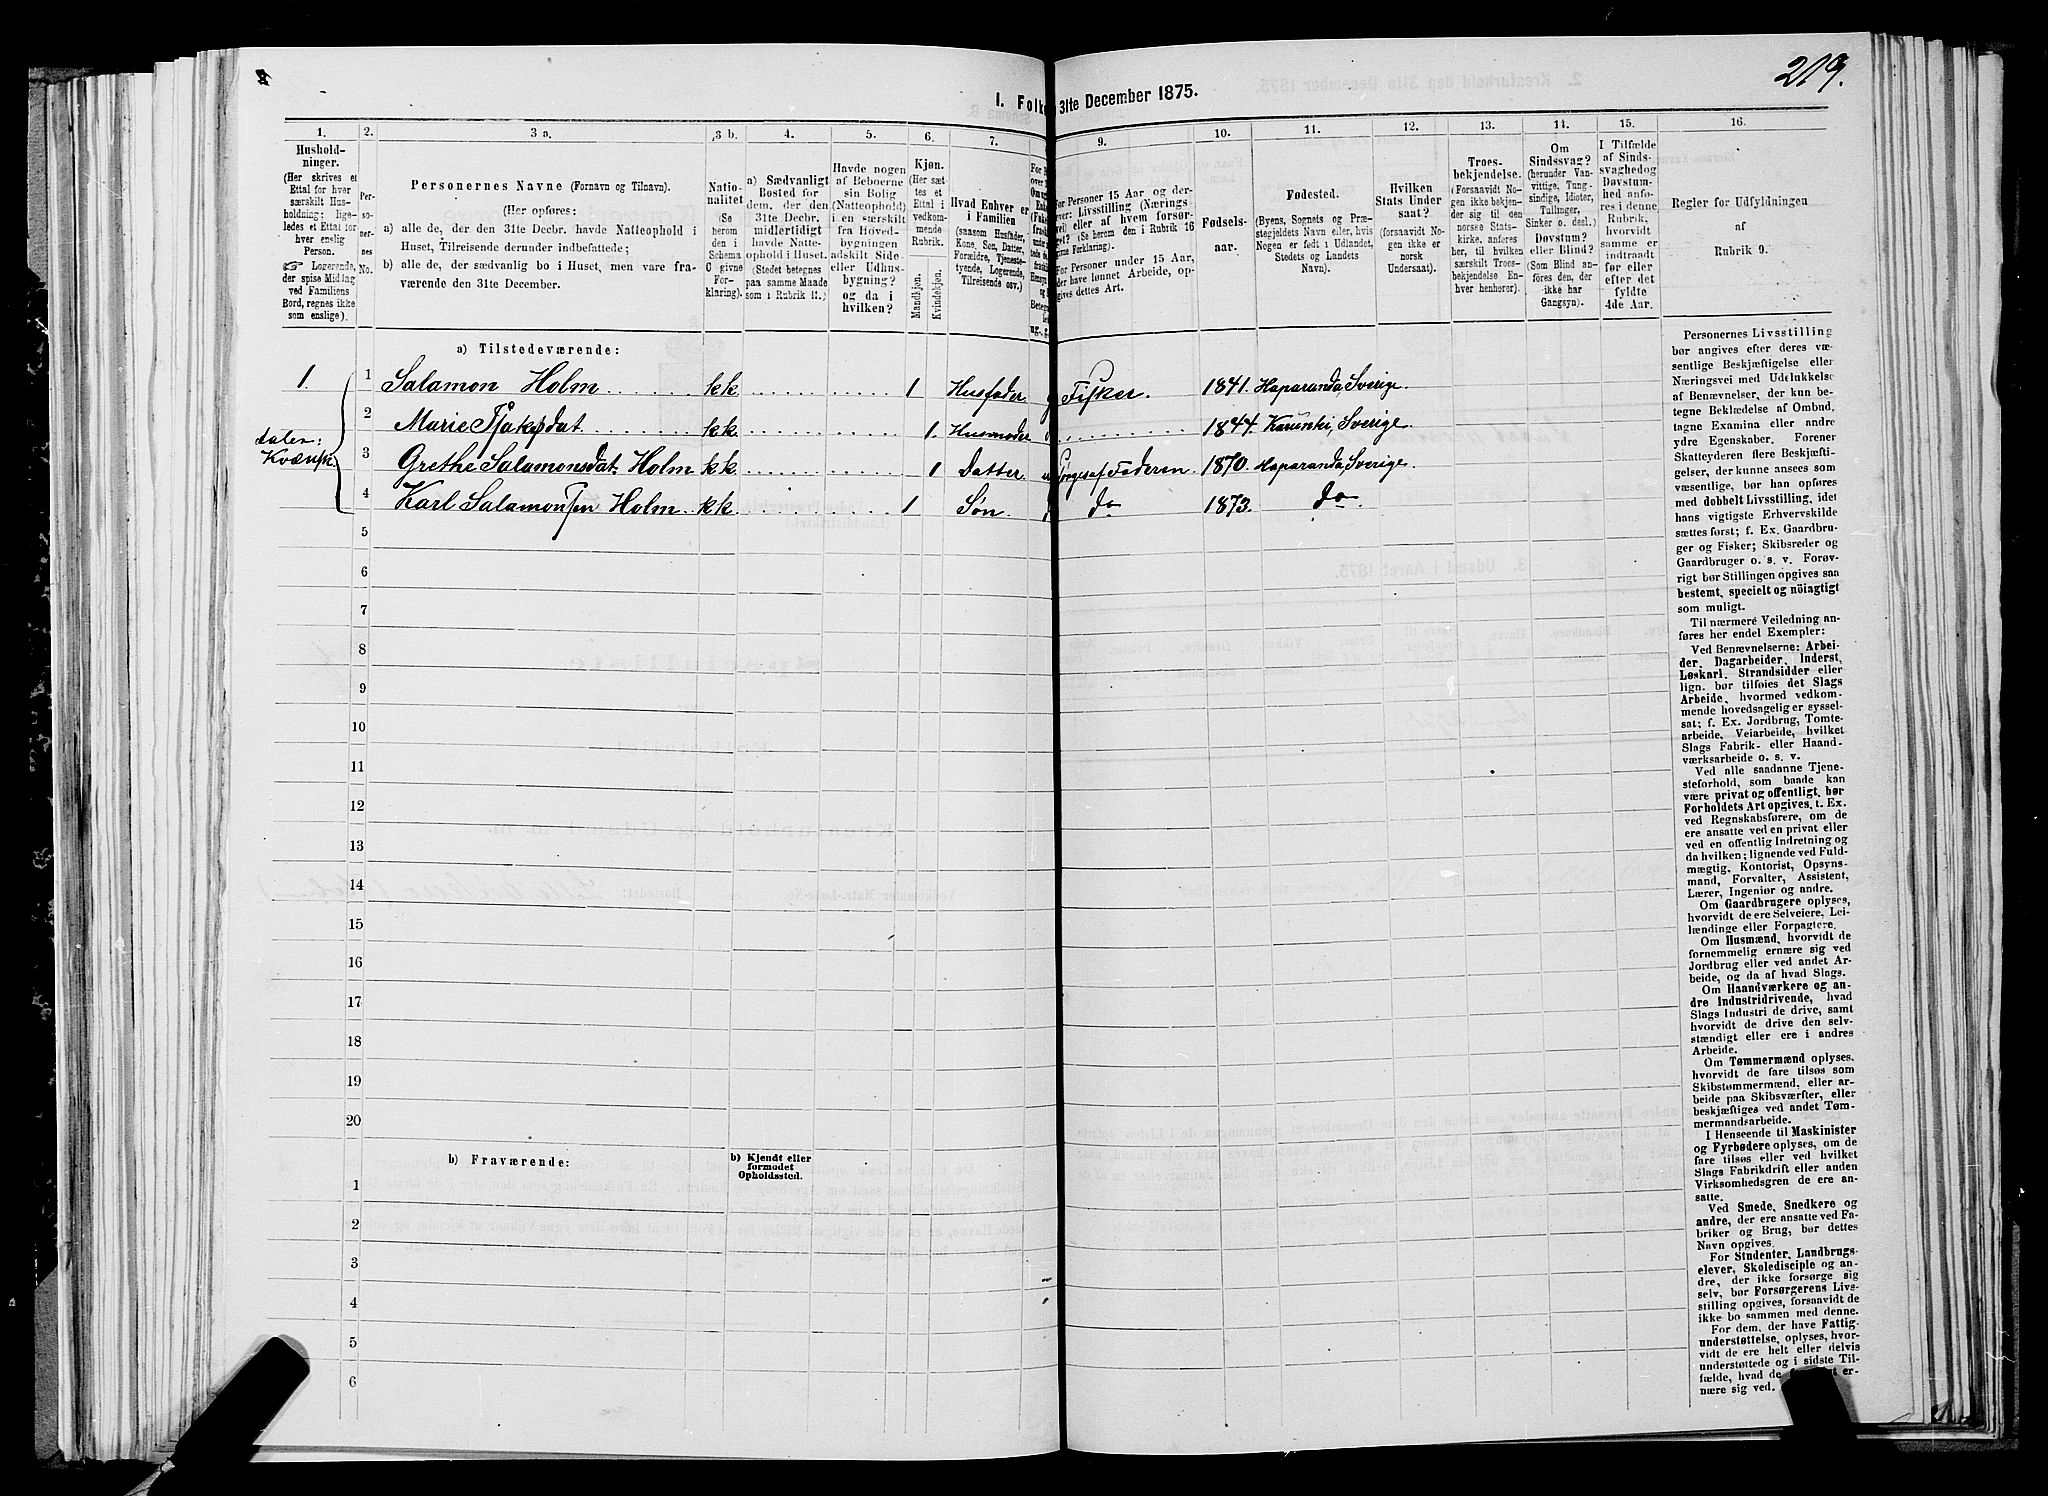 219.
1. Folke 31te December 1875.
1.
Hushold-
ninger.
(Her skrives et
Ettal for hver
særskilt Hus-
holdning; lige-
ledes et Ettal for
hver enslig
Person.
☞ Logerende,
der spise Middag
ved Familiens
Bord, regnes ikke
som enslige).
2.
Per-
so-
ner-
nes
No.
3 a.
Personernes Navne (Fornavn og Tilnavn).
(Her opføres:
a) alle de, der den 31te Decbr. havde Natteophold i
Huset, Tilreisende derunder indbefattede;
b) alle de, der sædvanlig bo i Huset, men vare fra-
værende den 31te December.
3 b.
Natio-
nalitet
(Se
herom
den i
Schema
C givne
For-
klaring).
4.
a) Sædvanligt
Bosted for
dem, der den
31te Decbr.
midlertidigt
havde Natte-
ophold i Huset.
(Stedet betegnes
paa samme Maade
som i Rubrik 11.)
5.
Havde nogen
af Beboerne
sin Bolig
(Natteophold)
i en særskilt
fra Hoved-
bygningen
adskilt Side-
eller Udhus-
bygning?
og da i
hvilken?
6.
Kjøn.
(Her sæt-
tes et
Ettal i
vedkom-
mende
Rubrik.
Mandkjøn.
Kvindekjøn.
7.
Hvad Enhver er
i Familien
(saasom Husfader,
Kone, Søn, Datter,
Forældre, Tjeneste-
tyende, Logerende,
Tilreisende osv.)
9.
For Personer 15 Aar og der-
over: Livsstilling (Nærings
vei) eller af hvem forsør-
get? (Se herom den i Rubrik 16
givne Forklaring).
For Personer under 15 Aar,
der have lønnet Arbeide, op-
gives dettes Art.
10.
Fødsels-
aar.
11.
Fødested.
(Byens, Sognets og Præ-
stegjeldets Navn eller, hvis
Nogen er født i Udlandet,
Stedets og Landets
Navn).
12.
Hvilken
Stats Under
saat?
(forsaavidt No-
gen ikke er
norsk
Undersaat).
13.
Troes-
bekjendelse.
(Forsaavidt No-
gen ikke bekjen-
der sig til den
norske Stats-
kirke, anføres
her, til hvilken
særskilt Troes-
bekjendelse En-
hver henhører).
14.
Om
Sindssvag?
(herunder Van-
vittige, Tung-
sindige, Idioter,
Tullinger,
Sinker o. desl.)
Døvstum?
eller Blind?
(Som Blind an-
føres den, der
ikke har
Gangsyn).
15.
I Tilfælde
af Sinds-
svaghed og
Døvstum-
hed anfø-
res i denne
Rubrik,
hvorvidt
samme er
indtraadt
før eller
efter det
fyldte
4de Aar.
16.
Regler for Udfyldningen
af
Rubrik 9.
a) Tilstedeværende:
1. 1 Salamon Holm kk 1 Husfader g Fisker. 1841. Haparanda, Sverige.
2 Marie Isaksdat kk 1. Husmoder 1844. Karunki, Sverige.
Kvænsk.
3 Grethe Salamonsdat. Holm kk 1 Datter Forsørges af Faderen 1870. Haparanda, Sverige.
4 Karl Salamonsen Holm kk 1 Søn. do 1873. do.
5
6
7
8
9
10
11
12
13
14
15
16
17
18
19
20
b) Fraværende:
b) Kjendt eller
formodet
Opholdssted.
1
2
3
4
5
6
Personernes Livsstilling
bør angives efter deres væ-
sentlige Beskjæftigelse eller
Næringsvei med Udelukkelse
af Benævnelser, der kun be-
tegne Beklædelse af Ombud,
tagne Examina eller andre
ydre Egenskaber. Forener
Skatteyderen flere Beskjæfti-
gelser, der kunne ansees som
væsentlige, bør han opføres
med dobbelt Livsstilling, idet
hans vigtigste Erhvervskilde
sættes først; f. Ex. Gaardbru-
ger og Fisker; Skibsreder og
Gaardbruger o. s. v. Forøv-
rigt bør Stillingen opgives saa
bestemt, specielt og nöiagtigt
som muligt.
Til nærmere Veiledning an-
føres her endel Exempler:
Ved Benævnelserne: Arbei-
der, Dagarbeider, Inderst,
Løskarl, Strandsidder eller
lign. bør tilføies det Slags
Arbeide, hvormed vedkom-
mende hovedsagelig er syssel-
sat; f. Ex. Jordbrug, Tomte-
arbeide, Veiarbeide, hvilket
Slags Fabrik- eller Haand-
værksarbeide o. s. v.
Ved alle saadanne Tjene-
steforhold, som baade kan
være privat og offentligt, bør
Forholdets Art opgives, t. Ex.
ved Regnskabsførere, om de
ere ansatte ved en privat eller
ved en offentlig Indretning og
da hvilken; lignende ved Fuld-
mægtig, Kontorist, Opsyns-
mand, Forvalter, Assistent,
Lærer, Ingeniør og andre.
Om Gaardbrugere oplyses,
hvorvidt de ere Selveiere, Lei-
lændinge eller Forpagtere.
Om Husmænd, hvorvidt de
fornemmelig ernære sig ved
Jordbrug eller ved andet Ar-
beide, og da af hvad Slags.
Om Haandværkere og an-
dre Industridrivende, hvad
Slags Industri de drive, samt
hvorvidt de drive den selv-
stændigt eller ere i andres
Arbeide.
Om Tømmermænd oplyses,
hvorvidt de fare tilsøs som
Skibstømmermænd, eller ar-
beide paa Skibsværfter, eller
beskjæftiges ved andet Tøm-
mermandsarbeide.
I Henseende til Maskinister
og Fyrbødere oplyses, om de
fare tilsøs eller ved hvilket
Slags Fabrikdrift eller anden
Virksomhedsgren de ere an-
satte.
Ved Smede, Snedkere og
andre, der ere ansatte ved Fa-
briker og Brug, bør dettes
Navn opgives.
For Studenter, Landbrugs-
elever, Skoledisciple og an-
dre, der ikke forsørge sig
selv, bør Forsørgerens Livs-
stilling opgives, forsaavidt de
ikke bo sammen med denne.
For dem, der have Fattig-
understøttelse, oplyses, hvor-
vidt de ere helt eller delvis
understøttede og i sidste Til-
fælde, hvad de er-
nære sig ved.